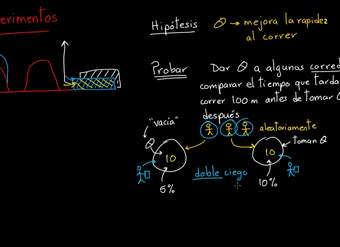 erimentos
Hipótesis θ → mejora la rapidez
al correr
Probar Dar θ a algunas corred
comparar el tiempo que tarda
correr 100 m antes de tomar θ
después
"vacía"
aleatoriamente
θ
toman θ
10
10
doble ciego
5%
10%